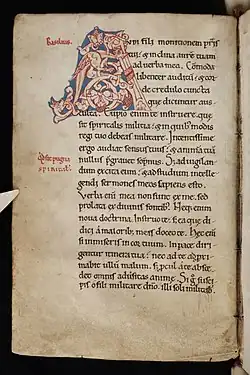 Basilius.
Audi fili monitionem pr̄is
tui: & inclina aurē tuam
ad verba mea. Cōmoda
libenter auditū: & cor-
de credulo cuncta
que dicuntur aus-
culta. Cupio enim te instruere que
sit spiritalis militia: & quib; modis
regi tuo debeas militare. Intentissime
ergo audiat sensus tuus: & animā tuā
nullus p̄grauet sopnus. Sȝ aduigilan-
dum excita eum: & ad studium intelle-
gendi sermones meos sapiens esto.
Verba enī mea non sunt ex me. sed
prolata ex diuinis fontib;. Neq; enim
noua doctrina instruo te: sȝ ea que di-
dici a maiorib; meis doceo te. Hec enī
si inmiseris in cor tuum. in pace diri-
gentur itinera tua: nec ad te app̄ri-
mabit ullū malum. sȝ pcul a te absce-
det omnis aduersitas anime. Si g̊ suscȩ-
pis o fili militare dn̄o. illi soli milita.
qd̄ sit pugna
spiritalis.